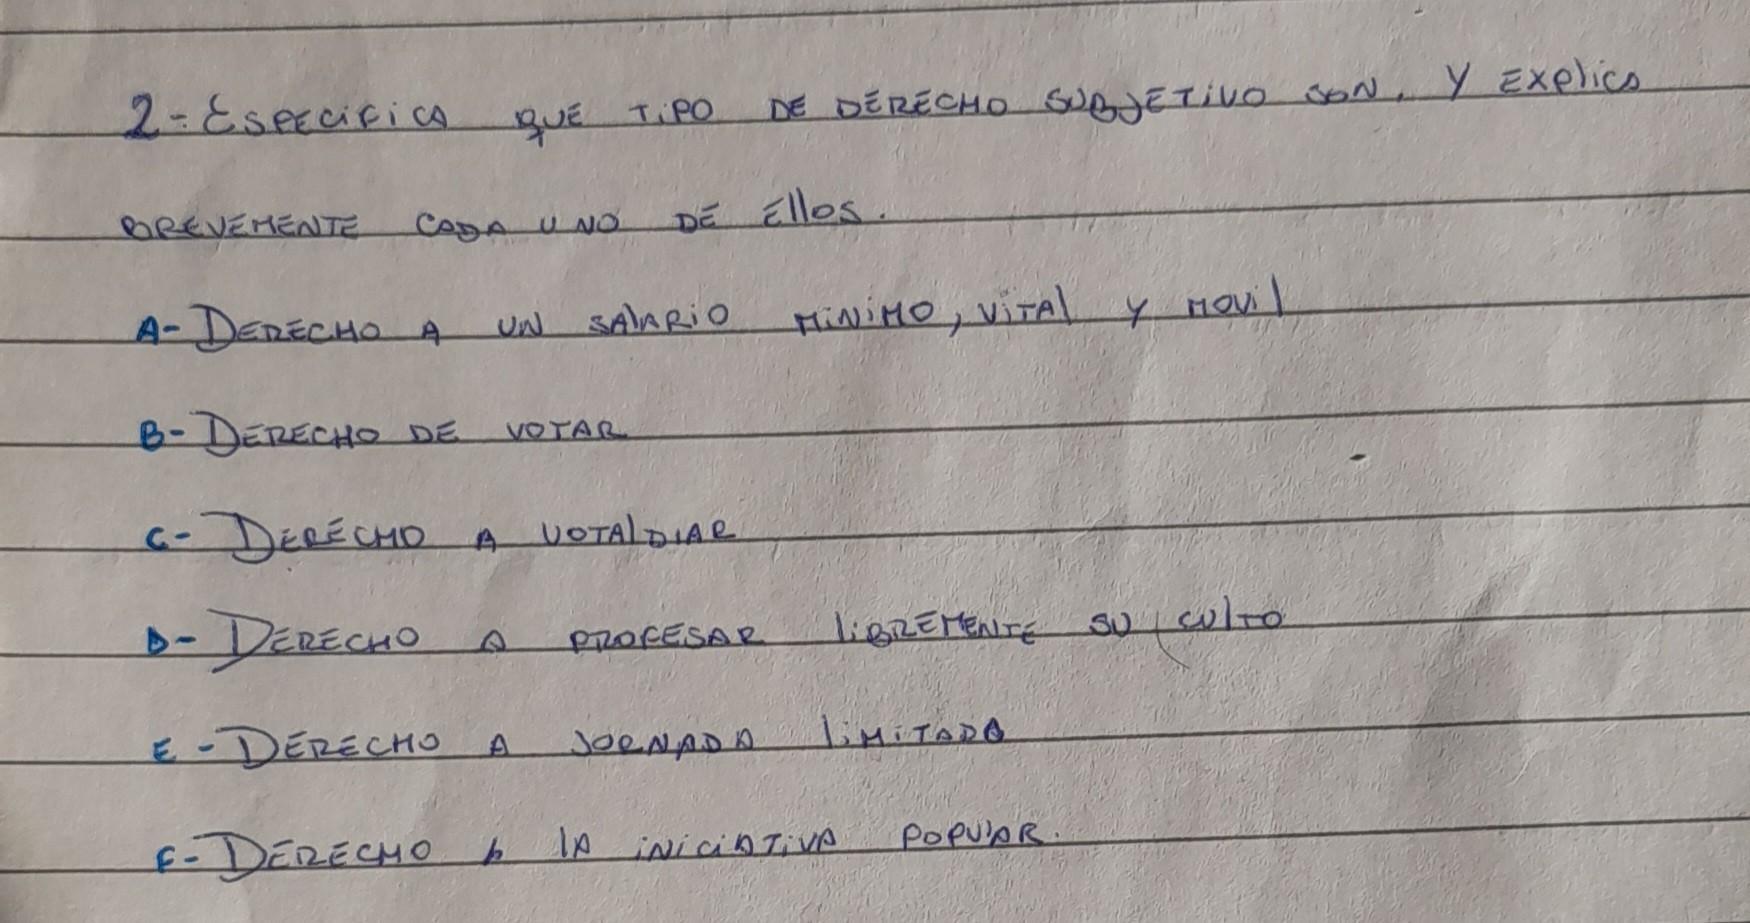 2- Especifica que tipo de derecho subjetivo son. y explica
brevemente cada uno de ellos.
A- Derecho a un salario minimo, vital y movil
B- Derecho de votar
C- Derecho a votaldiar
D- Derecho a profesar libremente su culto
E- Derecho a jornada limitada
F- Derecho a la iniciativa popular.